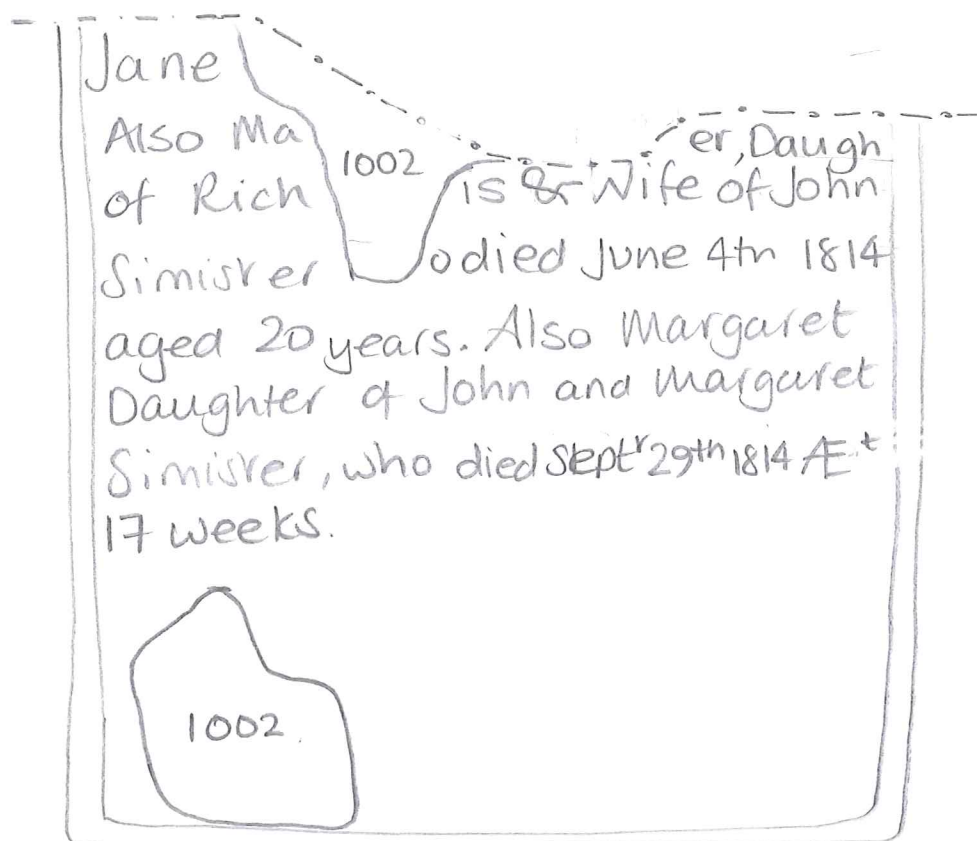 Jane
Also Ma er, Daugh
of Rich is & Wife of John
Simister o died June 4th 1814
aged 20 years. Also Margaret
Daughter of John and Margaret
Simister, who died Sept r 29th 1814 Æ t
17 weeks.
1002
1002